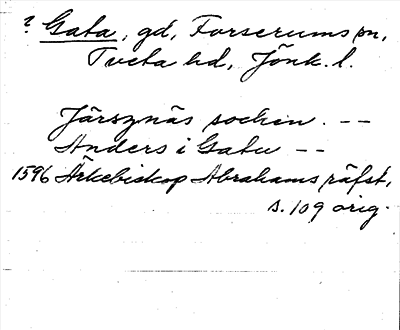 ? Gata, gd, Forserums sn,
Tveta hd, Jönk. l.
Järsznäs sochen. --
Anders i Gatu --
1596 Ärkebiskop Abrahams räfst,
s. 109 orig.